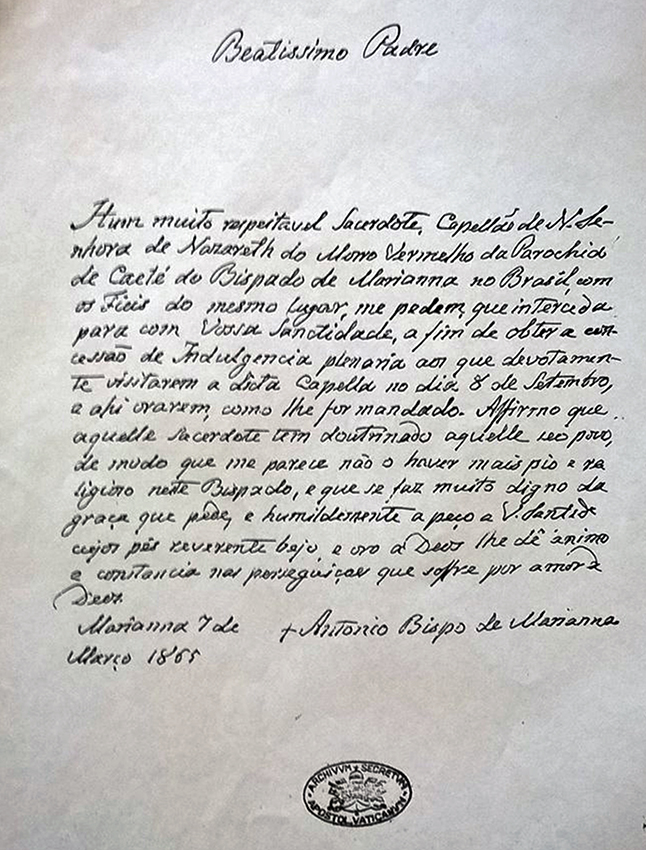 Beatissimo Padre
Hum muito respeitavel Sacerdote, Capellão de N. Se-
nhora de Nazareth do Morro Vermelho da Parochia
de Caeté do Bispado de Marianna no Brasil, com
os Fieis do mesmo lugar, me pedem, que interceda
para com Vossa Sanctidade, a fim de obter a con-
cessão de Indulgencia plenaria aos que devotamen-
te visitarem a dicta Capella no dia 8 de Setembro,
e ahi orarem, como lhe for mandado. Affirmo que
aquelle Sacerdote tem doutrinado aquelle seo povo,
de modo que me parece não o haver mais pio e re
ligioso neste Bispado, e que se faz muito digno da
graça que pede, e humildemente a peço a V. Santide
cujos pés reverente bejo, e oro a Deos lhe dê animo
e constancia nas perseguições que soffre por amor a
Deos.
Marianna 7 de + Antonio Bispo de Marianna
Março 1865
ARCHIVVM SECRETVM
APOSTOL. VATICANVM